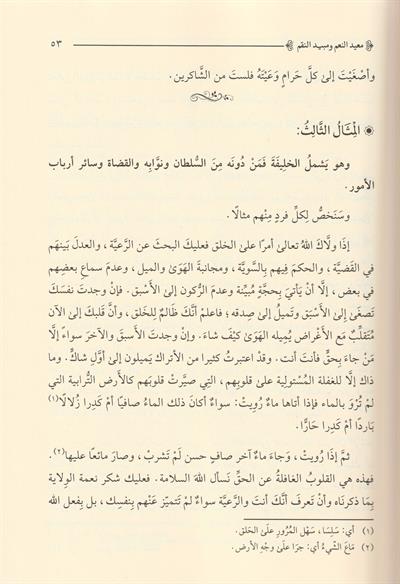 معيد النعم ومبيد النقم ٥٣
وأصْغَيْتَ إلىٰ كلِّ حَرامٍ وَعَيْتَهُ فلستَ من الشَّاكرين.
المِثَالُ الثَّالِثُ:
وهو يَشملُ الخلِيفَةَ فَمَنْ دُونَه مِنَ السُّلطان ونوَّابِه والقضاة وسائر أرباب
الأمور.
وسَنَخصُّ لِكلِّ فردٍ مِنْهم مثالًا.
إذَا ولَّاكَ اللهُ تعالىٰ أمرًا علىٰ الخلق فعليكَ البحث عن الرَّعيَّة، والعدلَ بَينَهم
في القَضيَّة، والحكمَ فِيهم بِالسَّويَّة، ومجانبةَ الهَوَىٰ والميل، وعدمَ سماعِ بعضِهم
في بعض، إلَّا أنْ يَأتيَ بِحجَّةٍ مُبيِّنة وعدمَ الرُّكون إلىٰ الأسْبق. فإنْ وجدتَ نفسَكَ
تَصغَىٰ إلىٰ الأَسْبَق وتَميلُ إلىٰ صِدقه؛ فاعلمْ أنَّكَ ظالمٌ للخَلق، وأنَّ قَلبكَ إلىٰ الآن
مُتقلِّبٌ مع الأغْراض يُميله الهَوىٰ كيْفَ شاءَ. وإنْ وجدتَ الأسبقَ والآخرَ سواءً إلَّا
مَنْ جاءَ بِحقٍّ فأنتَ أنت. وقدْ اعتبرتُ كثيرا من الأتراك يَميلون إلىٰ أوَّلِ شاكٍّ. وما
ذاك إلَّا للغفلة المُستولية علىٰ قلوبِهم، التي صيَّرتْ قلوبَهم كالأرض التُّرابية التي
لمْ تُرْوَ بالماء فإذا أتاها ماءٌ رُويتْ: سواءٌ أكانَ ذلك الماءُ صافيًا أمْ كَدِرا زُلالًا(١)
بَاردًا أمْ كَدِرًا حَارًّا.
ثمَّ إذَا رُويتْ، وَجاءَ ماءٌ آخر صافٍ حسن لَمْ تَشربْ، وصارَ مائعًا عليها(٢).
فهذه هي القلوبُ الغَافلة عن الحقِّ نَسألُ اللهَ السلامة. فعليكَ شكر نعمة الولاية
بِمَا ذكرنَاه وأنْ تَعرفَ أنَّكَ أنتَ والرَّعيَّة سواءٌ لمْ تَتميّزْ عَنْهم بِنفسِك، بل بِفعل الله
(١) أي: سَلِسًا، سَهْل المُرُورِ علىٰ الحَلق.
(٢) مَاعَ الشَّيءُ أي: جرَا علىٰ وجْهِ الأرض.